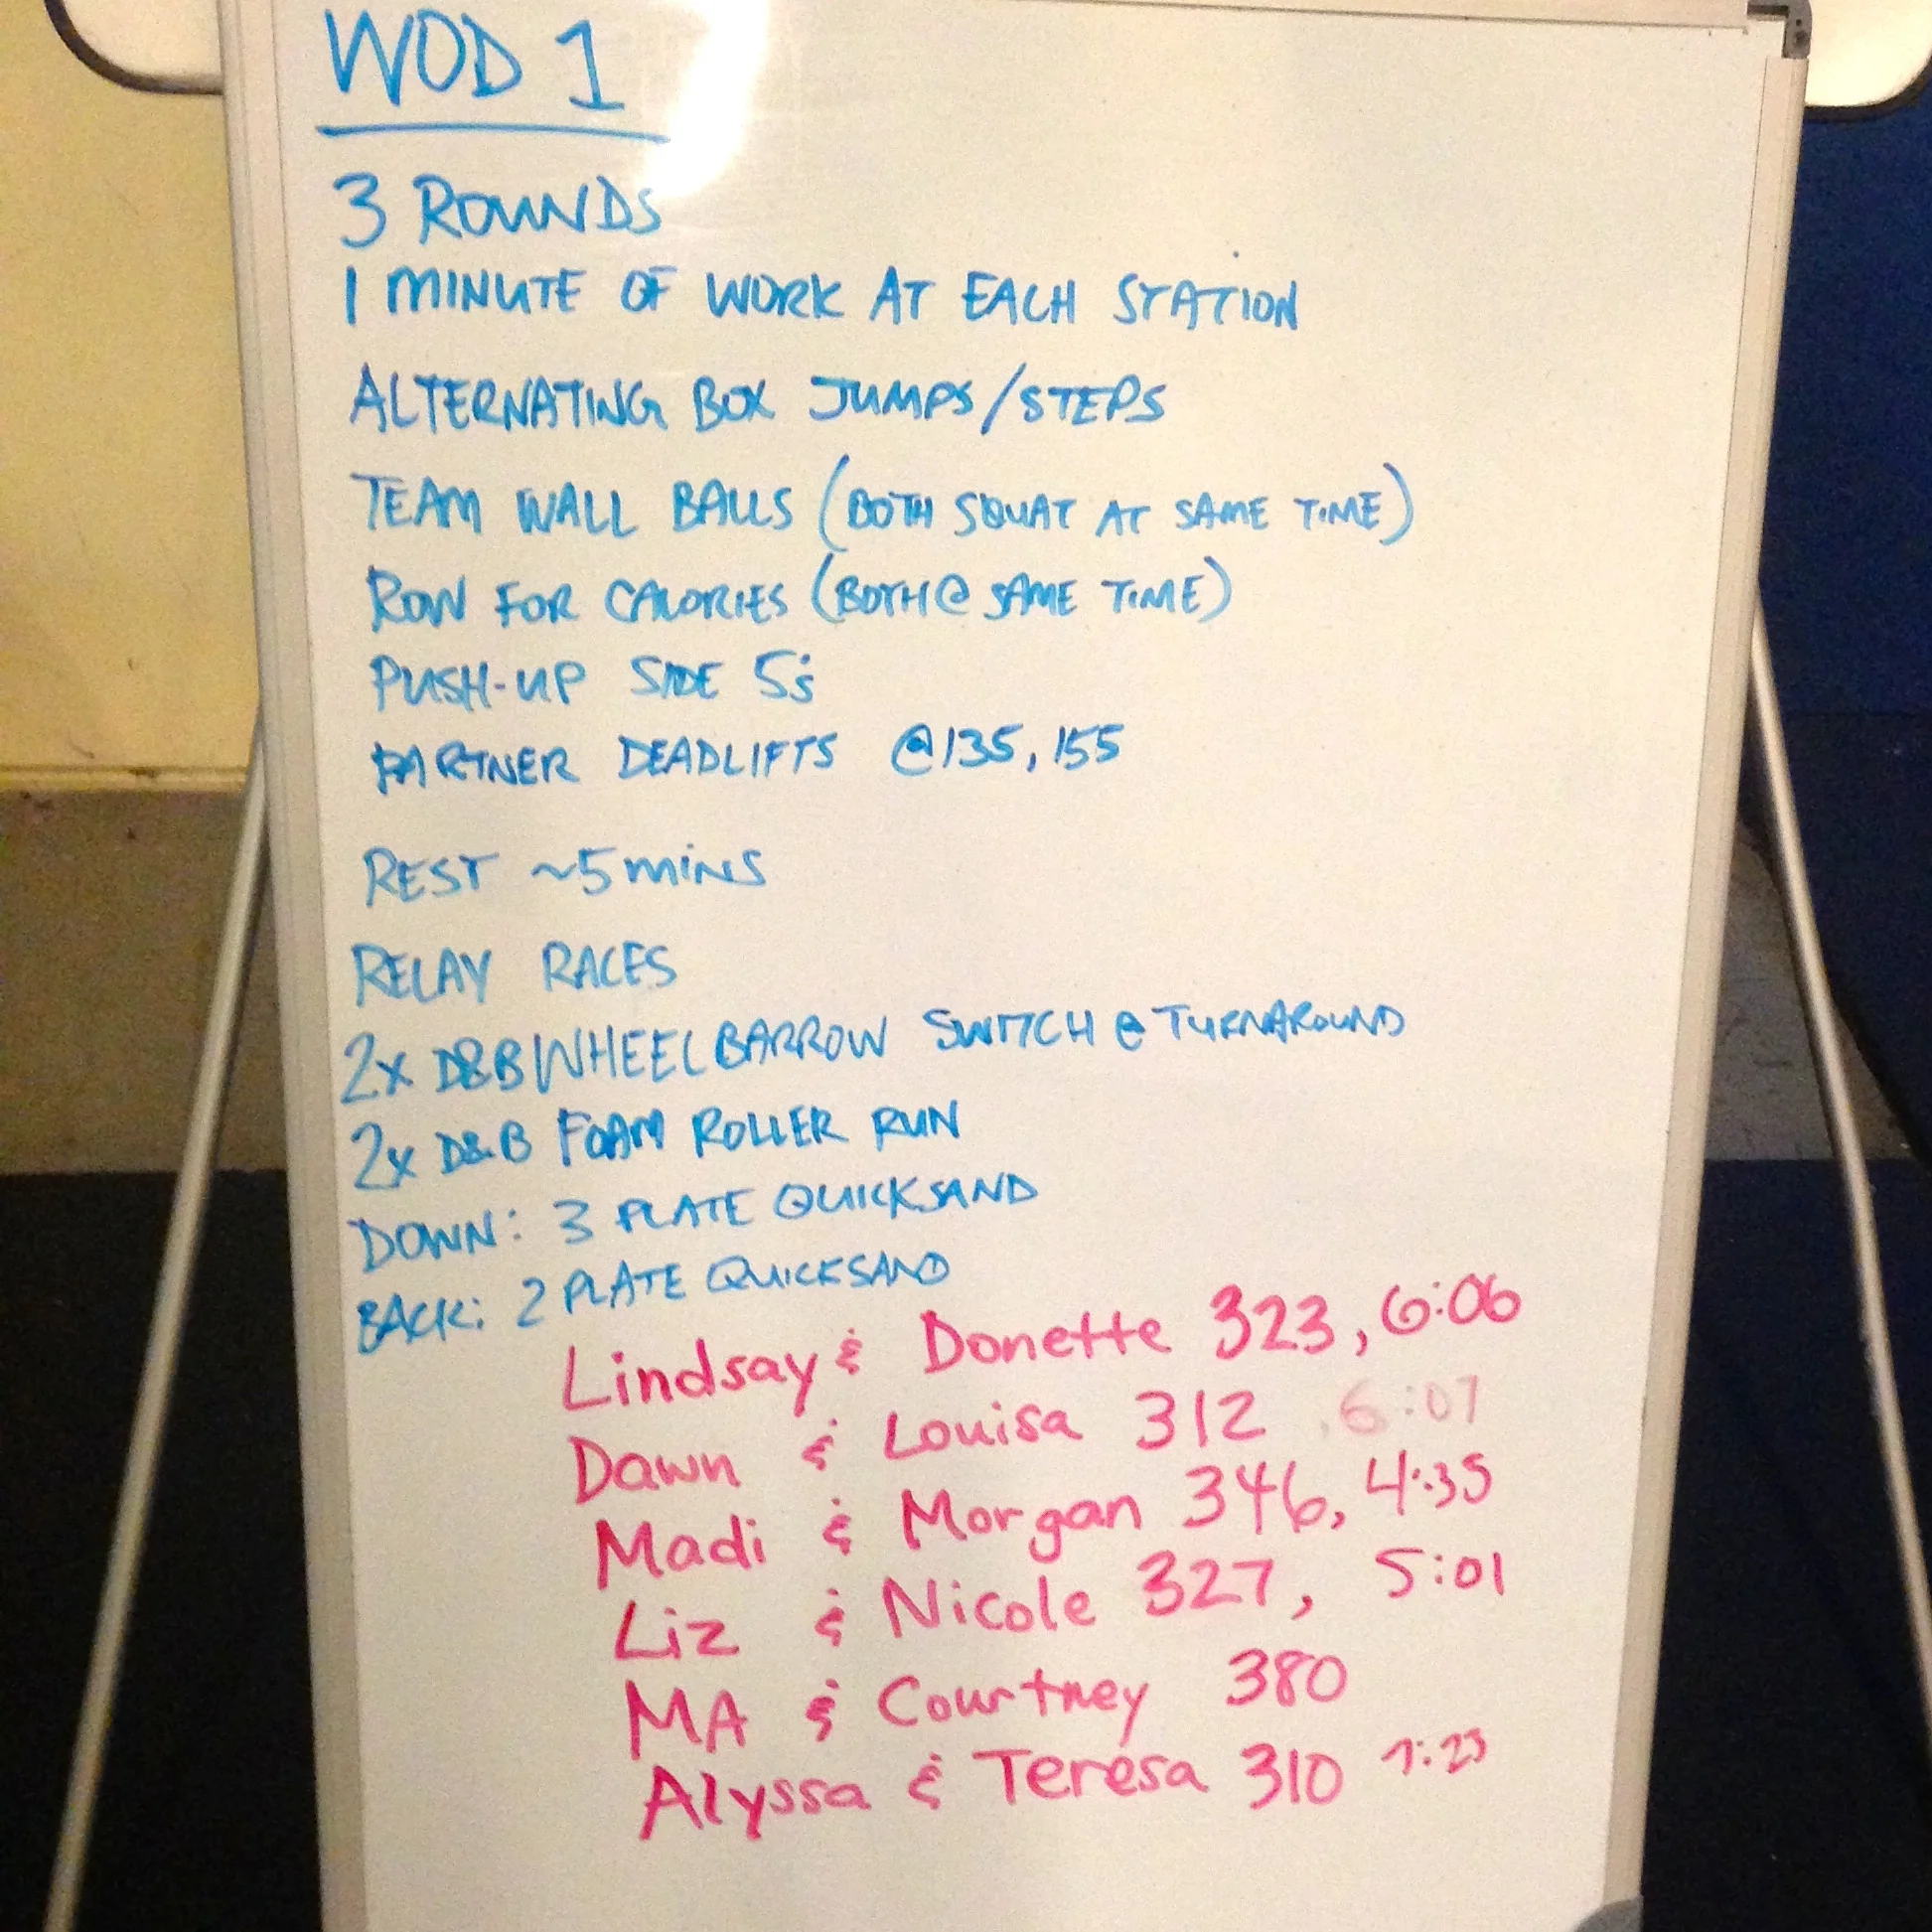 WOD 1
3 ROUNDS
1 MINUTE OF WORK AT EACH STATION
ALTERNATING BOX JUMPS/STEPS
TEAM WALL BALLS (BOTH SQUAT AT SAME TIME)
ROW FOR CALORIES (BOTH @ SAME TIME)
PUSH-UP SIDE 5's
PARTNER DEADLIFTS @135, 155
REST ~5 mins
RELAY RACES
2x D&B WHEELBARROW SWITCH @ TURNAROUND
2x D&B FOAM ROLLER RUN
DOWN: 3 PLATE QUICKSAND
BACK: 2 PLATE QUICKSAND
Lindsay & Donette 323, 6:06
Dawn & Louisa 312 6:07
Madi & Morgan 346, 4:35
Liz & Nicole 327, 5:01
MA & Courtney 380
Alyssa & Teresa 310